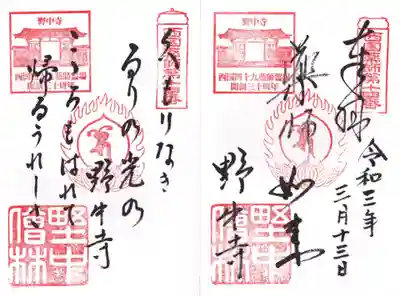 奉拝
令和三年
三月十三日
薬師如来
野中寺
野中寺
西国四十九薬師霊場
開創三十周年
野中
僧林
くもりなき
るりの光の
野中寺
こころもはれて
帰るうれしさ
野中寺
西国四十九薬師霊場
開創三十周年
野中
僧林